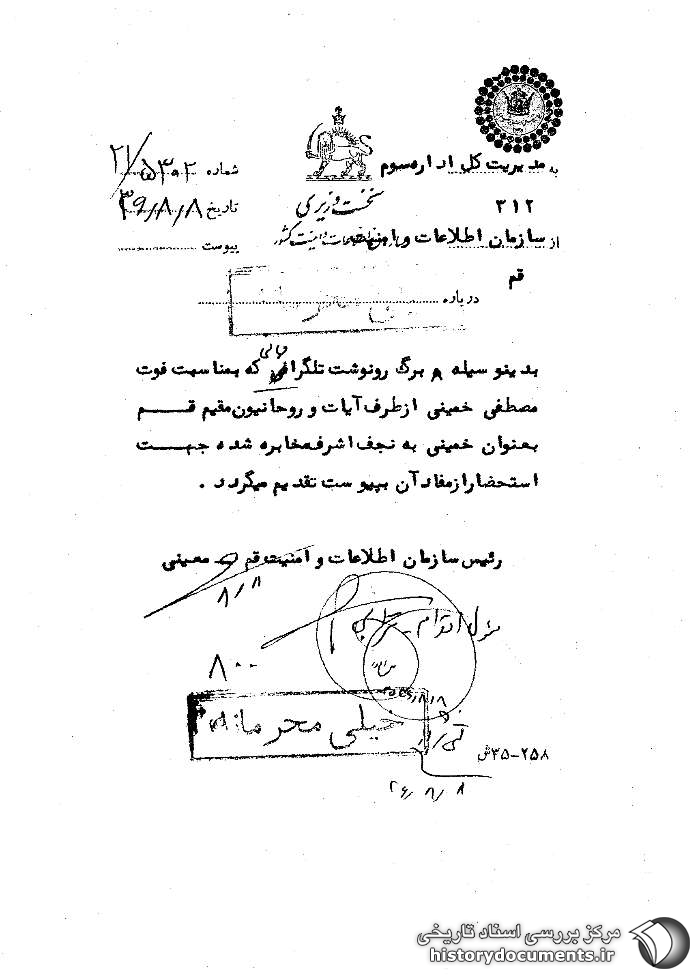 به مدیریت کل اداره سوم
۳۱۲
از سازمان اطلاعات و امنیت
قم
نخست وزیری
سازمان اطلاعات و امنیت کشور
شماره ۲۱/۵۳۰۲
تاریخ ۳۶/۸/۸
پیوست
درباره
بدینوسیله ۸ برگ رونوشت تلگرافهائی که بمناسبت فوت
مصطفی خمینی از طرف آیات و روحانیون مقیم قم
بعنوان خمینی به نجف اشرف مخابره شده جهت
استحضار از مفاد آن بپیوست تقدیم میگردد .
رئیس سازمان اطلاعات و امنیت قم - معینی
۸/۸
۸۰۰
خیلی محرمانه
۳۵-۲۵۸ش
۳۶/۸/۸
مرکز بررسی اسناد تاریخی
historydocuments.ir